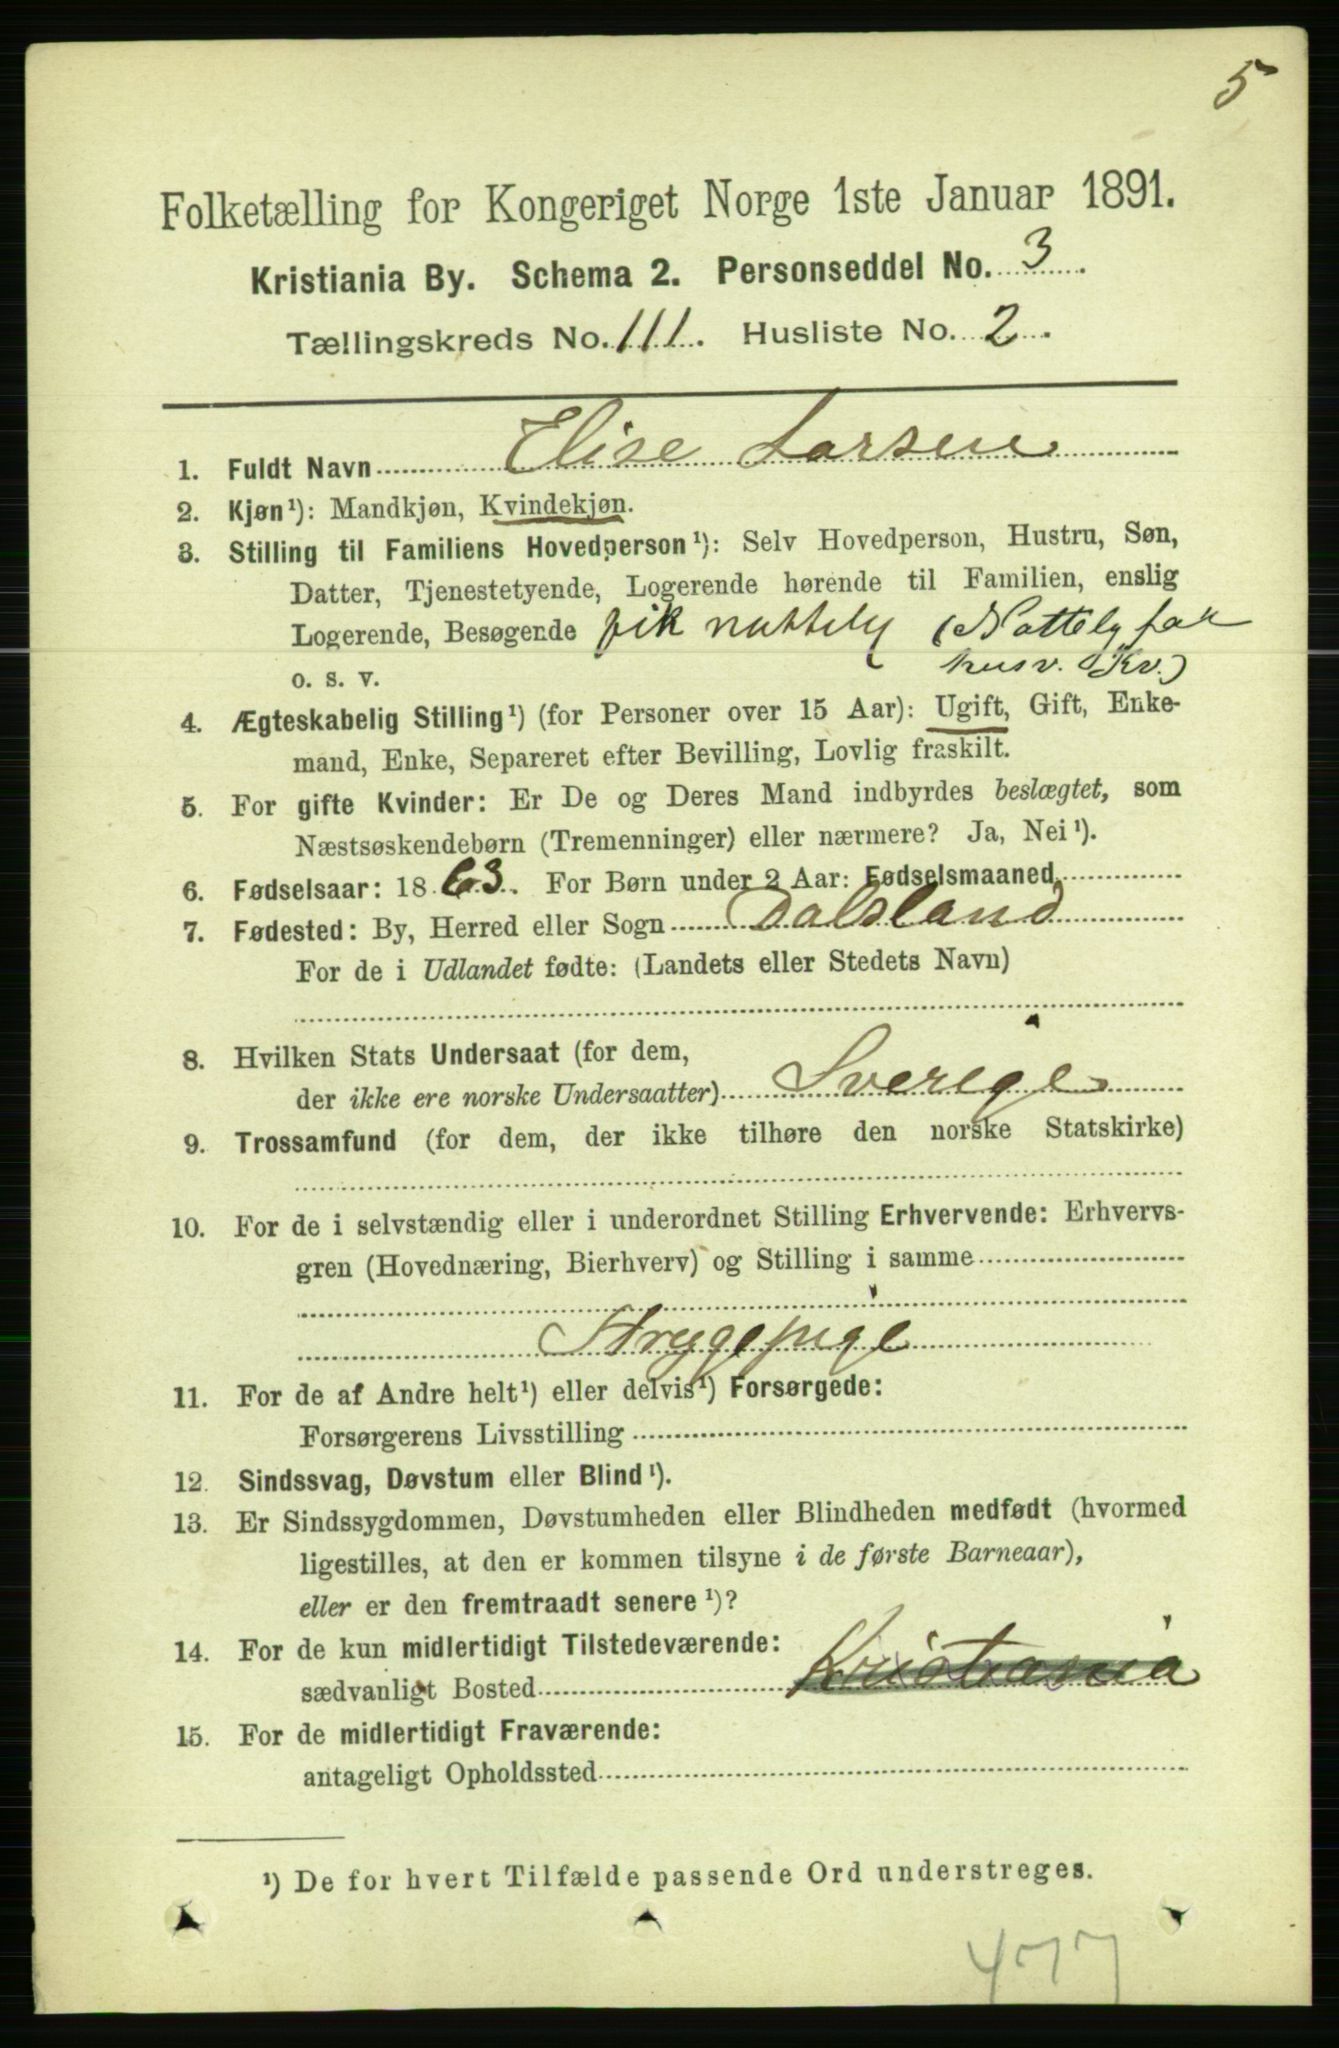 5
Folketælling for Kongeriget Norge 1ste Januar 1891.
Kristiania By. Schema 2. Personseddel No. 3.
Tællingskreds No. 111. Husliste No. 2.
Elise Larsen
1. Fuldt Navn
2. Kjøn¹): Mandkjøn, Kvindekjøn.
3. Stilling til Familiens Hovedperson¹): Selv Hovedperson, Hustru, Søn,
Datter, Tjenestetyende, Logerende hørende til Familien, enslig
Logerende, Besøgende fik nattely (Nattely for
husv. Kv.)
o. s. v.
4. Ægteskabelig Stilling¹) (for Personer over 15 Aar): Ugift, Gift, Enke-
mand, Enke, Separeret efter Bevilling, Lovlig fraskilt.
5. For gifte Kvinder: Er De og Deres Mand indbyrdes beslægtet, som
Næstsøskendebørn (Tremenninger) eller nærmere? Ja, Nei¹).
6. Fødselsaar: 1863. For Børn under 2 Aar: Fødselsmaaned
7. Fødested: By, Herred eller Sogn Dalsland
For de i Udlandet fødte: (Landets eller Stedets Navn)
8. Hvilken Stats Undersaat (for dem,
der ikke ere norske Undersaatter) Sverige
9. Trossamfund (for dem, der ikke tilhøre den norske Statskirke)
10. For de i selvstændig eller i underordnet Stilling Erhvervende: Erhvervs-
gren (Hovednæring, Bierhverv) og Stilling i samme
Strygepige
11. For de af Andre helt¹) eller delvis¹) Forsørgede:
Forsørgerens Livsstilling
12. Sindssvag, Døvstum eller Blind¹).
13. Er Sindssygdommen, Døvstumheden eller Blindheden medfødt (hvormed
ligestilles, at den er kommen tilsyne i de første Barneaar),
eller er den fremtraadt senere¹)?
14. For de kun midlertidigt Tilstedeværende:
sædvanligt Bosted Kristiania
15. For de midlertidigt Fraværende:
antageligt Opholdssted
¹) De for hvert Tilfælde passende Ord understreges.
477